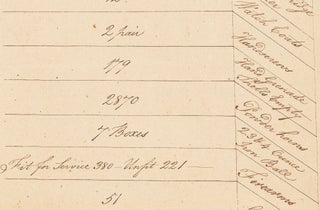 2 pair
179
2870
7 Boxes
Fit for Service 380 - Unfit 221
51
Watch Coats
Hand Grenade
Shells Empty
Powder horns
Iron Ball
Firearms